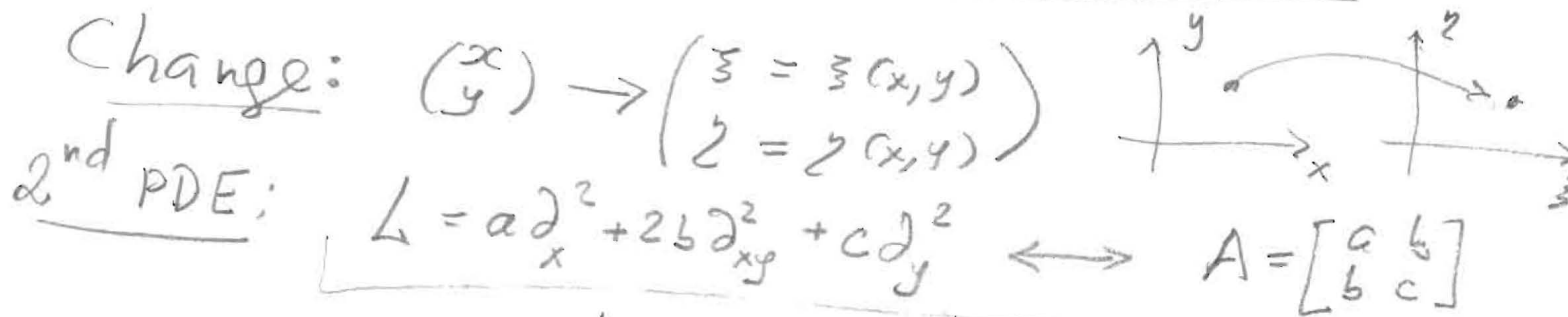 Change: (x y) → (ξ = ξ(x,y) η = η(x,y)) y x η ξ
2nd PDE: L = a∂²ₓ + 2b∂²ₓᵧ + c∂²ᵧ ⟷ A = [a b b c]